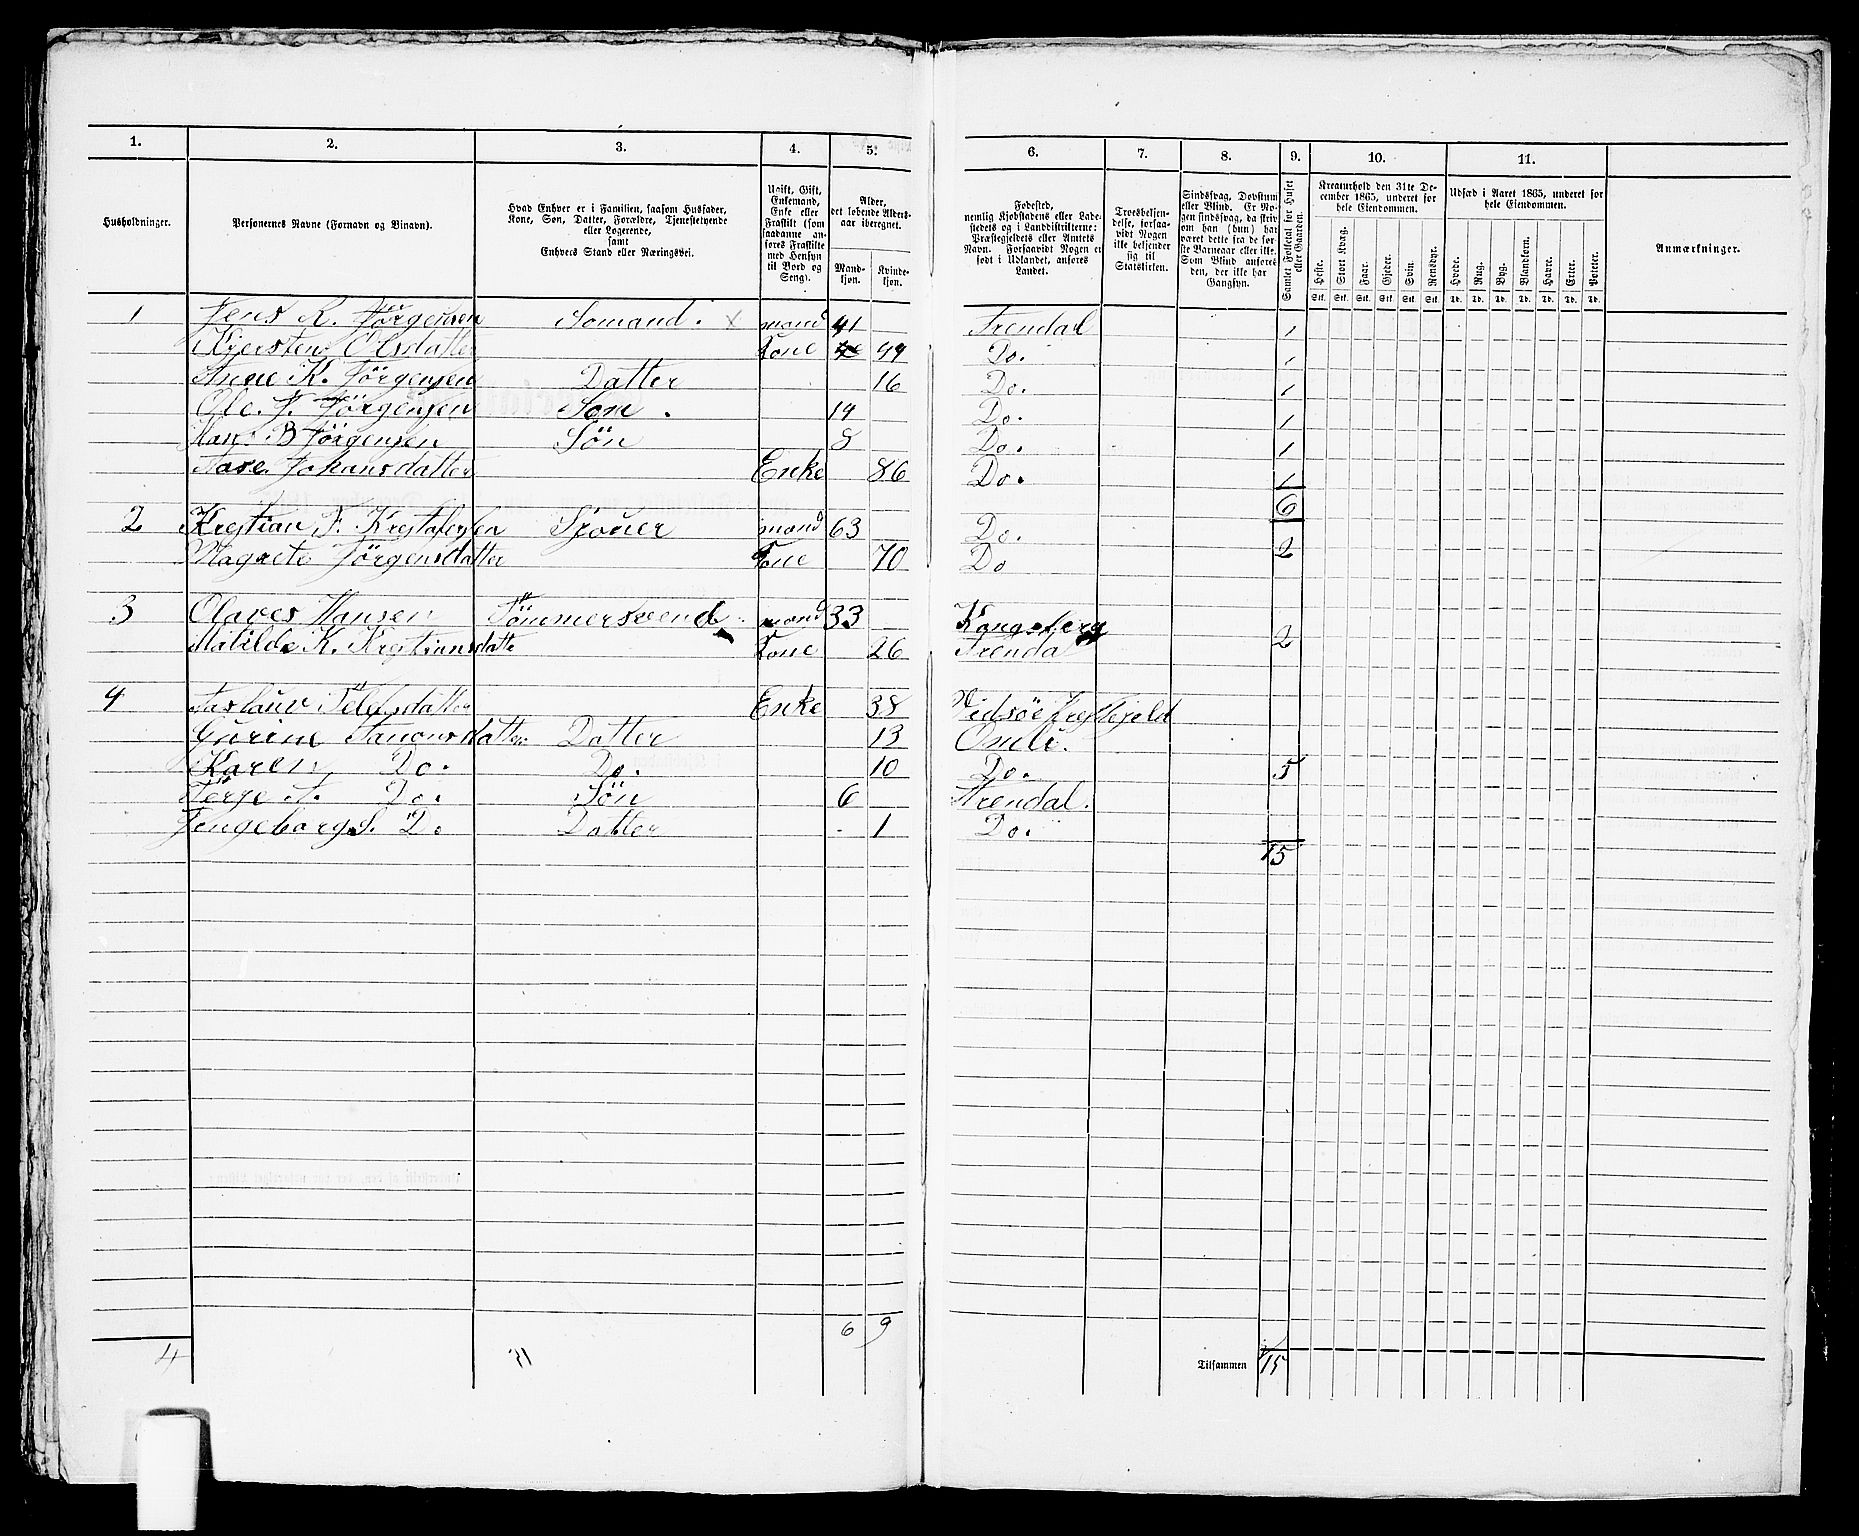 1. 2. 3. 4. 5. 6. 7. 8. 9. 10. 11.
Husholdninger.
Personernes Navne (Fornavn og Binavn).
Hvad Enhver er i Familien, saasom Husfader,
Kone, Søn, Datter, Forældre, Tjenestetyende
eller Logerende,
samt
Enhvers Stand eller Næringsvei.
Ugift, Gift,
Enkemand,
Enke eller
Fraskilt (som
saadanne an-
føres Fraskilte
med Hensyn
til Bord og
Seng).
Alder,
det løbende Alders-
aar iberegnet.
Mand-
kjøn.
Kvinde-
kjøn.
Fødested,
nemlig Kjøbstadens eller Lade-
stedets og i Landdistrikterne:
Præstegjeldets eller Amtets
Navn. Forsaavidt Nogen er
født i Udlandet, anføres
Landet.
Troesbekjen-
delse, forsaa-
vidt Nogen
ikke bekjender
sig til
Statskirken.
Sindssvag, Døvstum
eller Blind. Er No-
gen sindssvag, da skriv
om han (hun) har
været dette fra de før-
ste Barneaar eller ikke.
Som Blind anføres
den, der ikke har
Gangsyn.
Samlet Folketal for Huset
eller Gaarden.
Kreaturhold den 31te De-
cember 1865, underet for
hele Eiendommen.
Heste. Stort Kvæg. Faar. Gjeder. Svin. Rensdyr.
Stk. Stk. Stk. Stk. Stk. Stk.
Udsæd i Aaret 1865, underet for
hele Eiendommen.
Hvede. Rug. Byg. Blandkorn. Havre. Erter. Poteter.
Td. Td. Td. Td. Td. Td. Td.
Anmærkninger.
1 Jens R. Jørgensen Somand. x mand 41 Arendal 1
Kjersten Olsdatter Kone 49 Do. 1
Anne K. Jørgensen Datter 16 Do. 1
Ole. J. Jørgensen Søn . 14 Do. 1
Hans B Jørgensen Søn 8 Do. 1
Aase Johansdatter Enke 86 Do. 1
6
2 Krestian F. Krestofersen Sjouer mand 63 Do.
Magrete Jørgensdatter Kone 70 Do 2
3 Olaves Hansen Tømmersvend mand 33 Kongsberg
Matilde K. Krestiansdatte Kone 26 Arendal 2
4 Aaslauv Datter Enke 38
Gurine Datter 13 Omli.
Karen Do. Do. 10 Do. 5
Terje A. Do. Søn 6 Arendal.
Jngeborg S. Do. Datter 1 Do.
15
6 9
4 15 Tilsammen 15